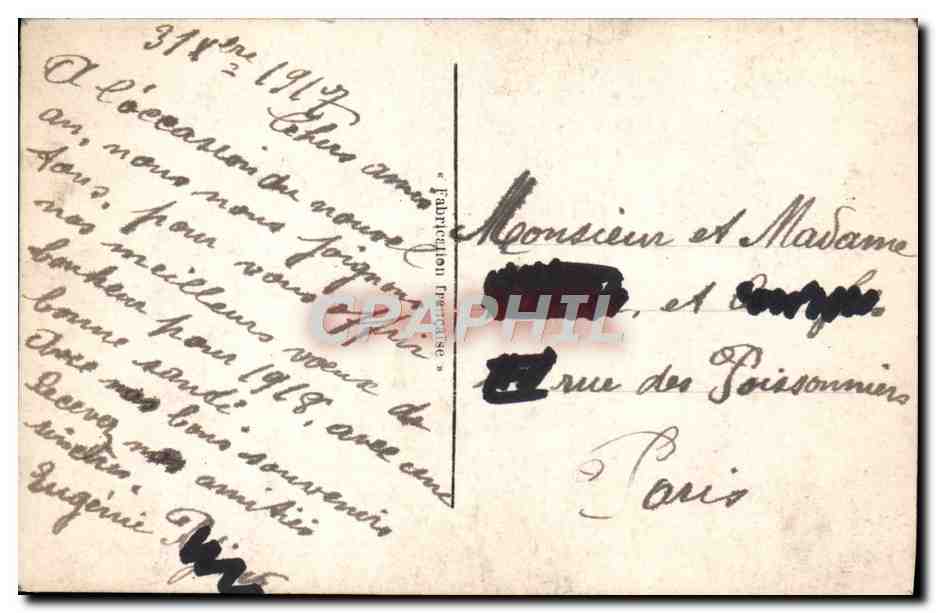 31 Xbre 1917
Chers amis
A l'occasion du nouvel
an, nous nous joignons
tous, pour vous offrir
nos meilleurs voeux de
bonheur pour 1918, avec une
bonne santé.
Avec nos bons souvenirs
Recevez nos amitiés
sincères.
Eugénie
« Fabrication française »
CPAPHIL
Monsieur et Madame
, et
rue des Poissonniers
Paris